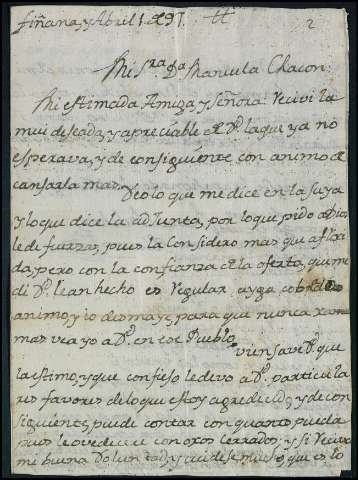 fiñana, y Abril 1 de 97 2
Mi S.ra D.a Manuela Chacon:
Mi estimada Amiga, y Señora: Recivi la
mui deseada, y apreciable de V. la que ya no
esperava, y de consiguiente con animo de
cansarla mas.
Veo lo que me dice en la suya
y lo que dice la adjunta, por lo que pido a Dios
le de fuerzas, pues la considero mas que aflixi
da, pero con la confianza de la oferta, que me
di V. le an hecho es regular ayga cobrado
animo, y no desmaye, para que nunca
mas vea yo a V. en ese Pueblo.
vien save V. que
la estimo, y que confieso le devo a V. particula
res favores de lo que estoy agredecido, y de con
siguiente, puede contar con quanto pueda
pues le ovedecere con oxos cerrados, y si Vecivi
mi buena Voluntad, y es lo